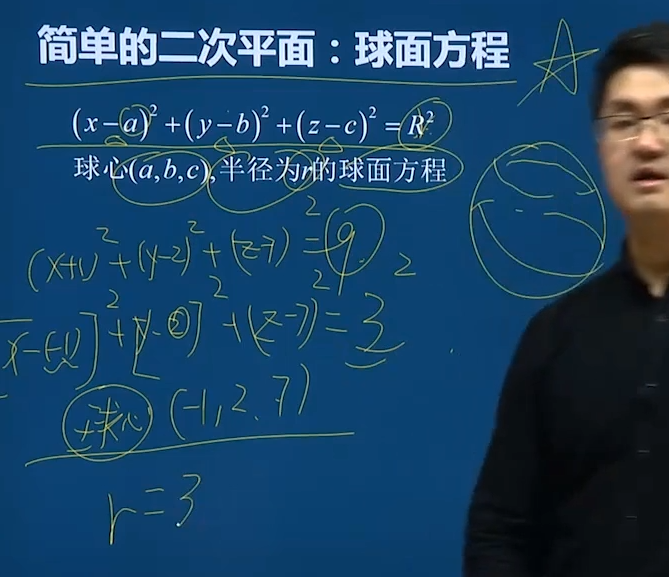 简单的二次平面：球面方程
(x−a)²+(y−b)²+(z−c)²=R²
球心(a,b,c),半径为r的球面方程
(x+1)²+(y-2)²+(z-7)²=9
[x-(-1)]²+[y-2]²+(z-7)²=3²
球心 (-1,2,7)
r=3